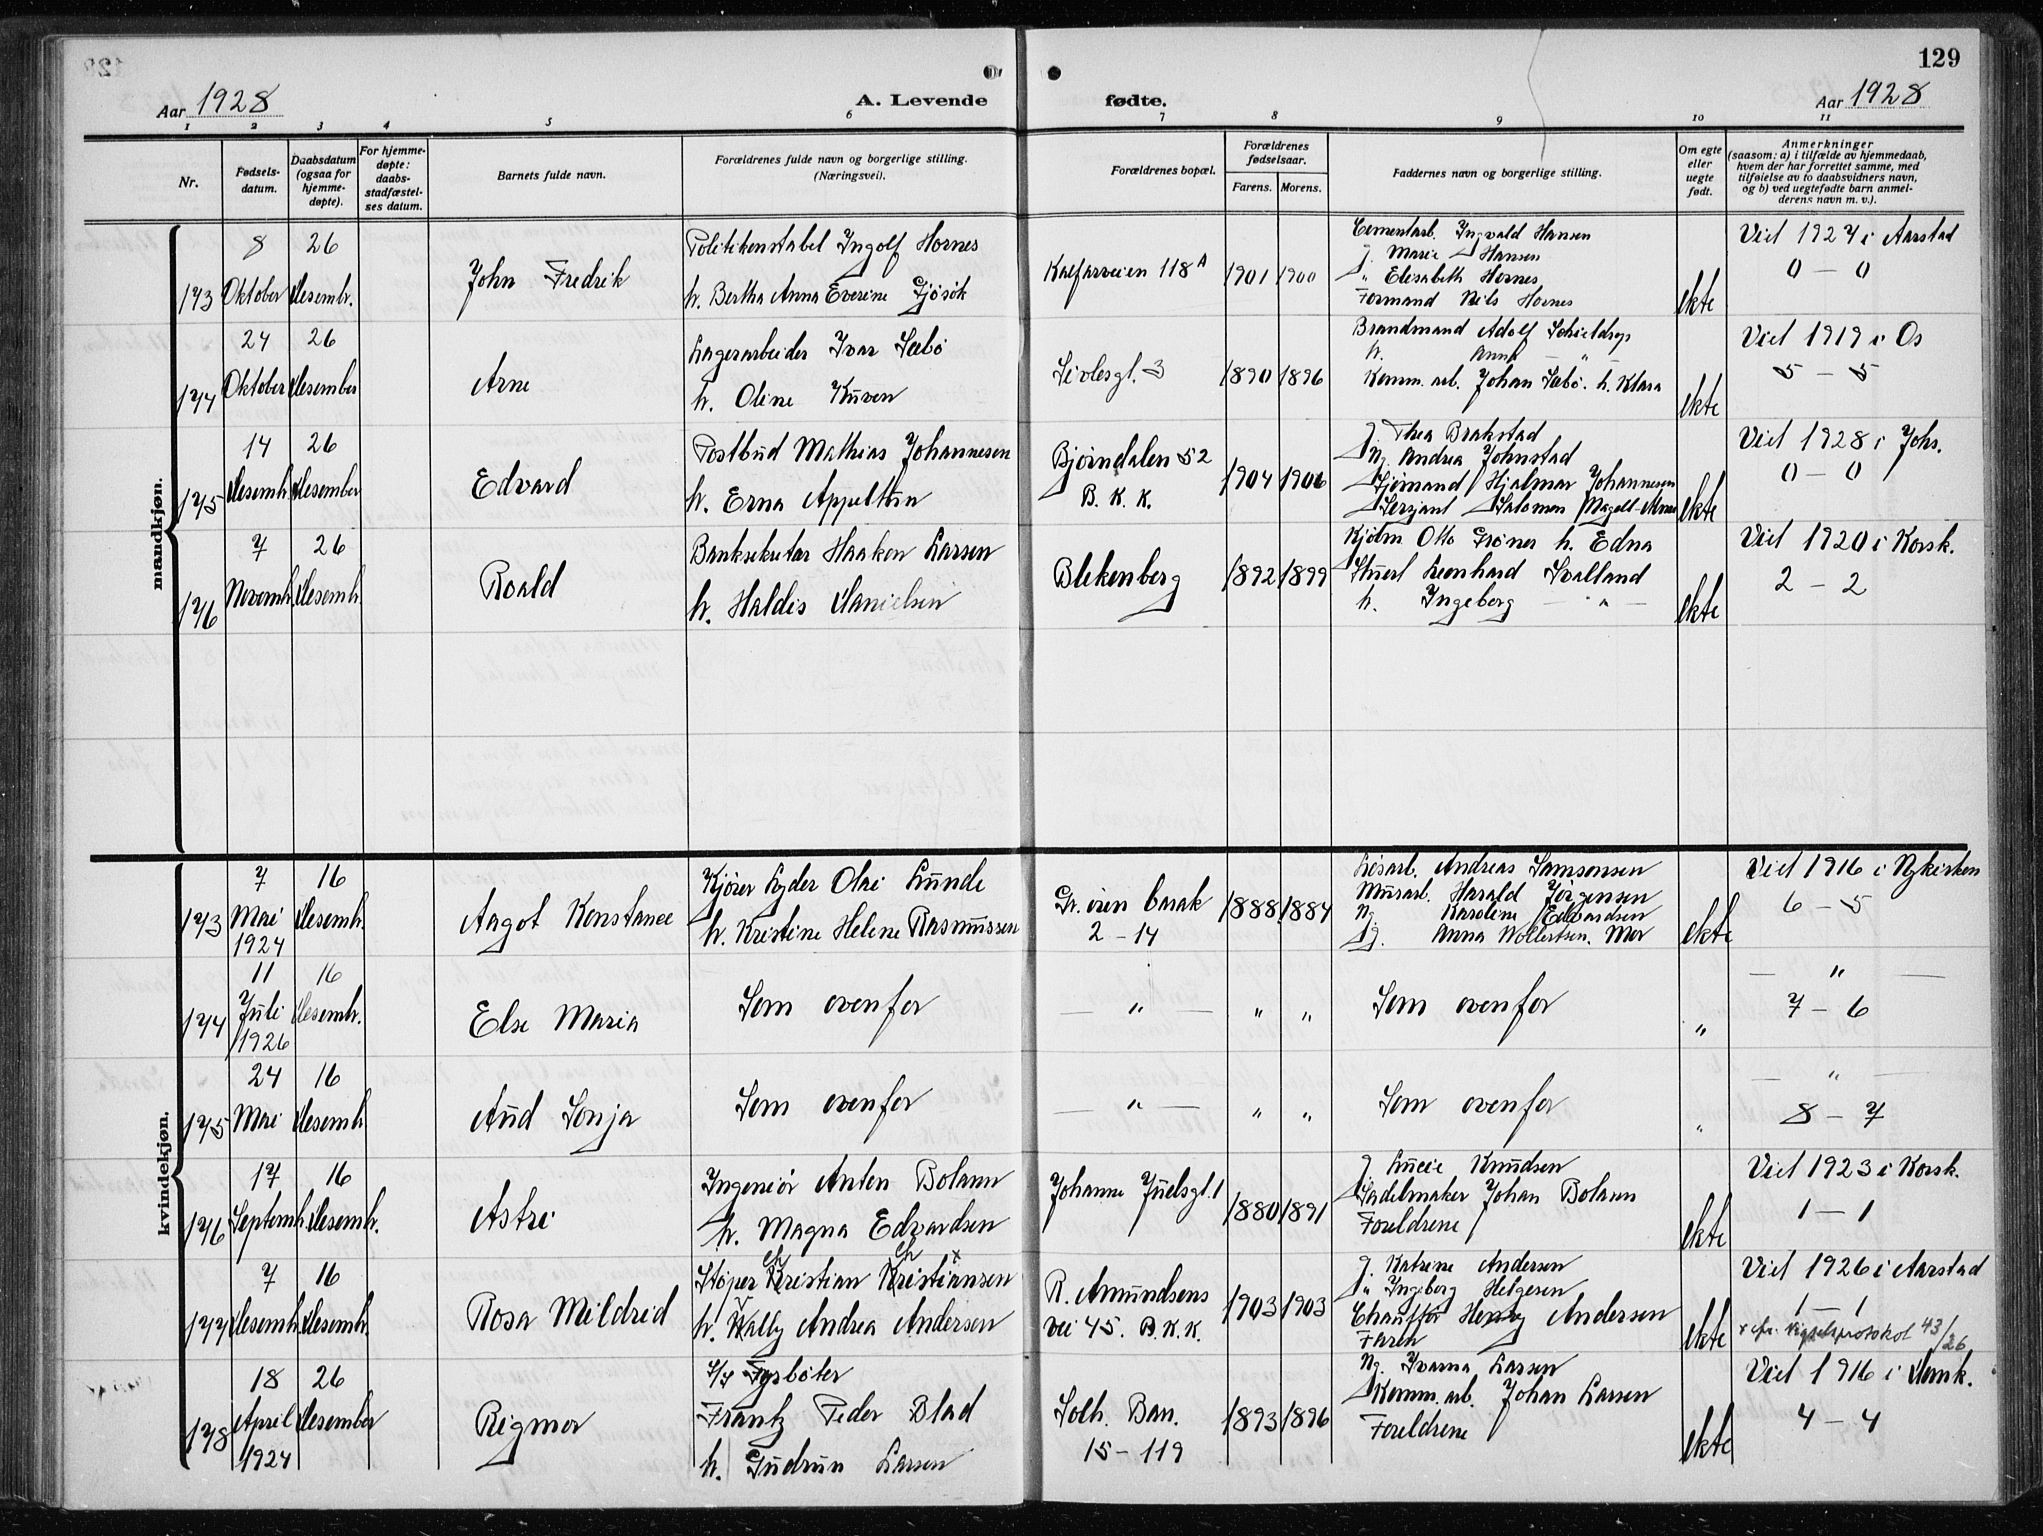 129
Aar 1928
A. Levende fødte.
Aar 1928
1 2 3 4 5 6 7 8 9 10 11
Nr.
Fødsels-
datum.
Daabsdatum
(ogsaa for
hjemme-
døpte).
For hjemme-
døpte:
daabs-
stadfæstel-
ses datum.
Barnets fulde navn.
Forældrenes fulde navn og borgerlige stilling.
(Næringsvei).
Forældrenes bopæl.
Forældrenes
fødselsaar.
Farens. Morens.
Faddernes navn og borgerlige stilling.
Om egte
eller
uegte
født.
Anmerkninger
(saasom: a) i tilfælde av hjemmedaab,
hvem der har forrettet samme, med
tilføielse av to daabsvidners navn,
og b) ved uegtefødte barn anmel-
derens navn m. v.).
mandkjøn.
173
8
Oktober
26
Desembr.
John Fredrik
Politikonstabel Ingolf Hornes
h. Bertha Anna Everine Gjøsøk
Kalfarveien 118 A
1901 1900
Cementarb. Ingvald Hansen
g. Marie Hansen
" Elisabeth Hornes
Formand Nils Hornes
ekte
Viet 1927 i Aarstad
0 — 0
174
24
Oktober
26
Desember
Arne
Lagerarbeider Ivar Sæbø
h. Oline Kuven
Sivlesgt. 3
1890 1896
Brandmand Adolf Schieldrop
h. Anna — " —
Komm. arb. Johan Sæbø. h. Klara
ekte
Viet 1919 i Os
5 — 5
175
14
Desembr.
26
Desember
Edvard
Postbud Mathias Johannesen
h. Erna Appelthun
Bjørndalen 52
B. K. K.
1904 1906
g. Thea Brakstad
Ug. Andrea Johnstad
Sjømand Hjalmar Johannesen
Sersjant Salomon
ekte
Viet 1928 i Johs.
0 — 0
176
7
Novembr.
26
Desembr.
Roald
Banksekretær Haakon Larsen
h. Haldis Danielsen
Blekenberg
1892 1899
Kjøbm Otto Grøner h. Edna
Stuert Leonhard Svalland
h. Ingeborg — " —
ekte
Viet 1920 i Korsk.
2 — 2
kvindekjøn.
173
7
Mai
1924
16
Desembr.
Aagot Konstance
Kjører Lyder Olai Lunde
h. Kristine Helene Rasmussen
Gr. vien barak
2 — 14
1888 1884
Løsarb. Andreas Samsonsen
Murarb. Harald Jørgensen
Ug. Karoline Edvardsen
g. Anna Wollertsen. Mor
ekte
Viet 1916 i Nykirken
6 — 5
174
11
Juli
1926
16
Desembr.
Else Maria
Som ovenfor
— " —
" "
Som ovenfor
"
— " —
7 — 6
175
24
Mai
16
Desembr.
Aud Sonja
Som ovenfor
— " —
" "
Som ovenfor
"
— " —
8 — 7
176
17
Septembr.
16
Desembr.
Astri
Ingeniør Anton Bolann
h. Magna Edvardsen
Johanne Juelsgt. 1
1880 1891
g. Lucie Knudsen
Sadelmaker Johan Bolann
Foreldrene
ekte
Viet 1923 i Korsk.
1 — 1
177
7
Desembr.
16
Desembr.
Rosa Mildred
Ch Ch x
Støper Kristian Kristiansen
V
h. Wally Andrea Andersen
R. Amundsens
vei 45. B.K.K.
1903 1903
g. Katrine Andersen
" Ingeborg Helgesen
Chauffør Henry Andersen
Faren
ekte
Viet 1926 i Aarstad
1 — 1
x cfr. vigselsprotokol 43/26
178
18
April
1924
26
Desember
Rigmor
Fyrbøter
Frantz Peder Blad
h. Gudrun Larsen
Solh. Bar.
15 — 119
1893 1896
Ug. Ivarna Larsen
Komm. arb. Johan Larsen
Foreldrene
ekte
Viet 1916 i Domk.
4 — 4